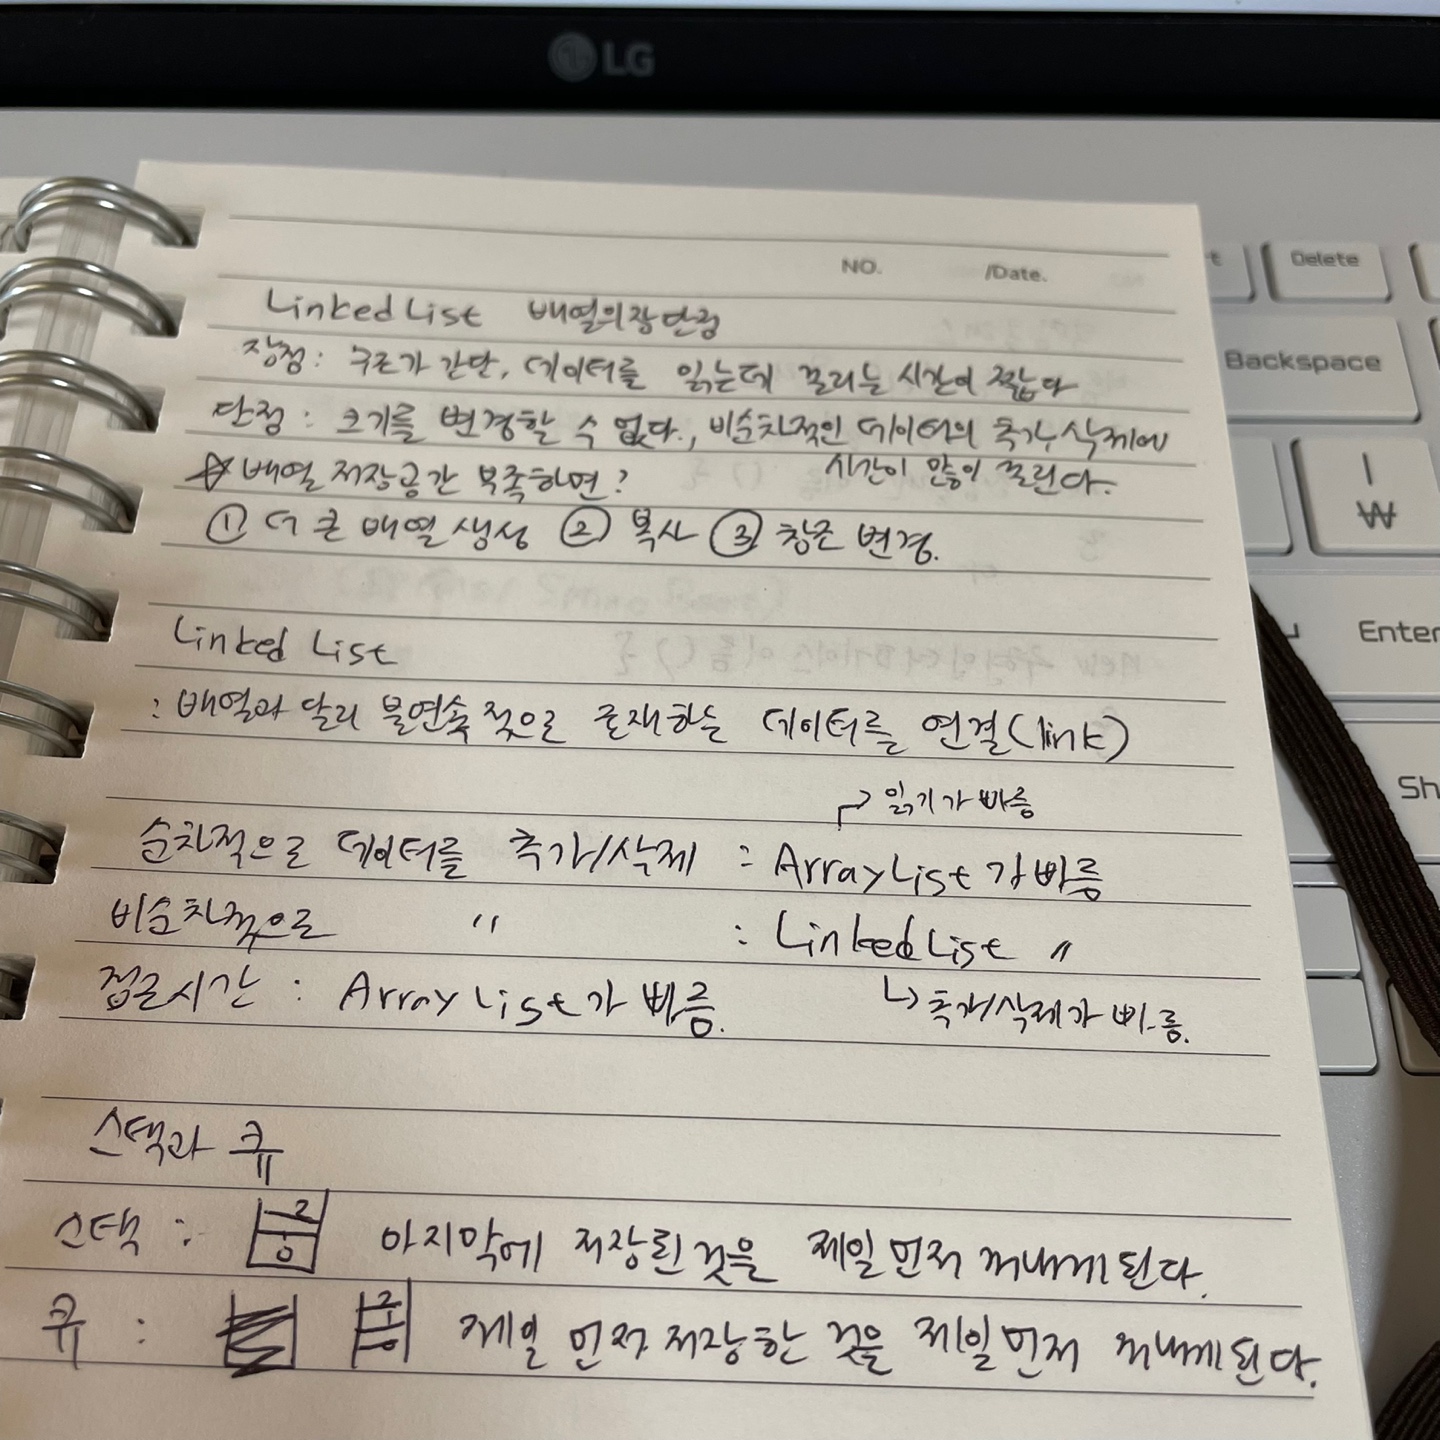 LG
NO. /Date.
Delete
Backspace
Enter
Sh
₩
Linked List 배열의 장단점
장점 : 구조가 간단, 데이터를 읽는데 걸리는 시간이 짧다
단점 : 크기를 변경할 수 없다., 비순차적인 데이터의 추가, 삭제에
시간이 많이 걸린다.
☆ 배열 저장공간 부족하면?
① 더 큰 배열 생성 ② 복사 ③ 참조 변경.
Linked List
: 배열과 달리 불연속적으로 존재하는 데이터를 연결(link)
→ 읽기가 빠름
순차적으로 데이터를 추가/삭제 : ArrayList가 빠름
비순차적으로 〃 : Linked List 〃
↳ 추가/삭제가 빠름.
접근시간 : Array List가 빠름.
스택과 큐
스택 : 2 1 0 마지막에 저장된 것을 제일 먼저 꺼내게 된다.
큐 : 2 1 0 제일 먼저 저장한 것을 제일 먼저 꺼내게 된다.